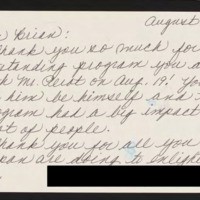 August
Brian:
hank you so much for
tanding program you a
k Mr. Perot on Aug. 19! You
him be himself and
ogram had a big impact
t of people.
hank you for all you
ean are doing to enligh